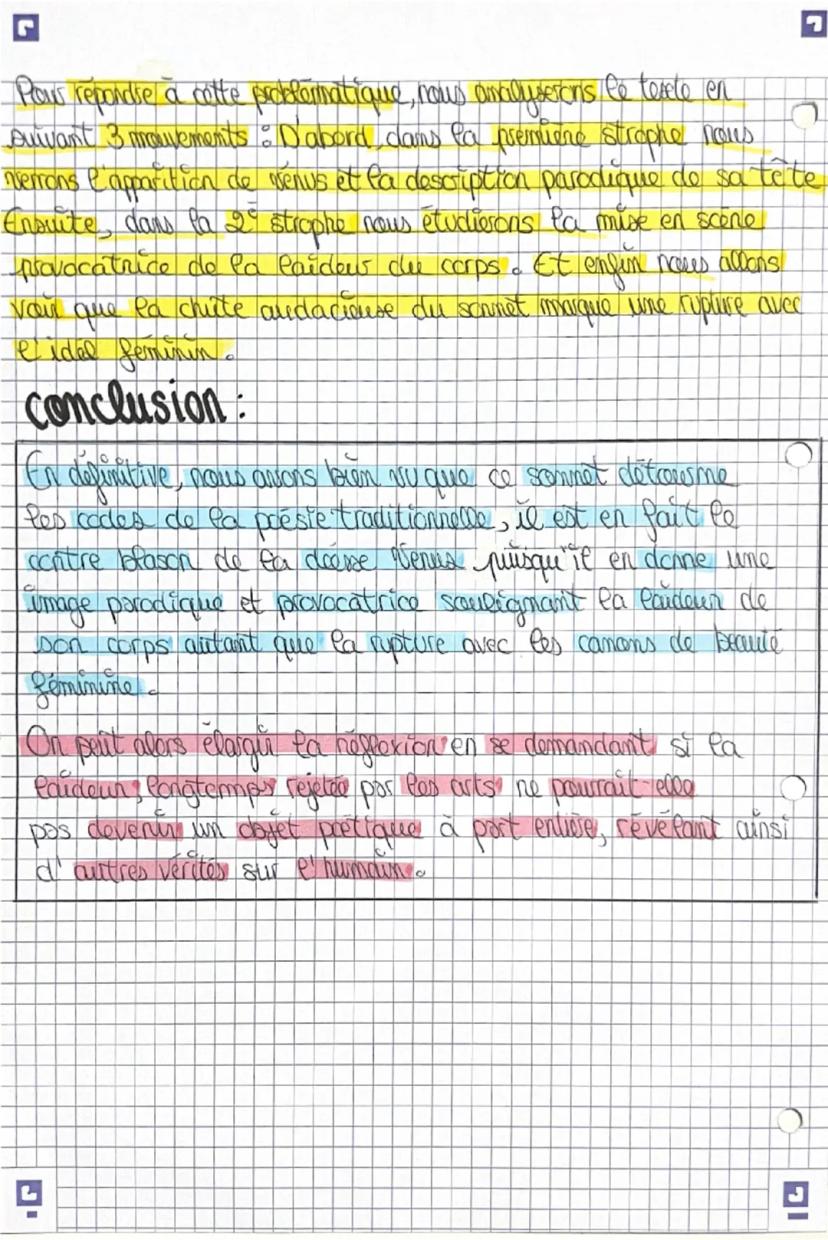 Pour répondre à cette problématique, nous analyserons le texte en
suivant 3 mouvements : D'abord, dans la première strophe nous
verrons l'apparition de Vénus et la description parodique de sa tête
Ensuite, dans la 2e strophe nous étudierons la mise en scène
provocatrice de la laideur du corps. Et enfin nous allons
voir que la chute audacieuse du sonnet marque une rupture avec
l'idél féminin.
conclusion :
En définitive, nous avons bien vu que ce sonnet détourne
les codes de la poésie traditionnelle, il est en fait le
contre blason de la déesse Venus puisqu'il en donne une
image parodique et provocatrice soulignant la laideur de
son corps autant que la rupture avec les canons de beauté
féminine.
On peut alors élargir la réflexion en se demandant si la
laideur, longtemps rejetée par les arts ne pourrait-elle
pas devenir un objet poétique à part entière, révélant ainsi
d'autres vérités sur l'humain.